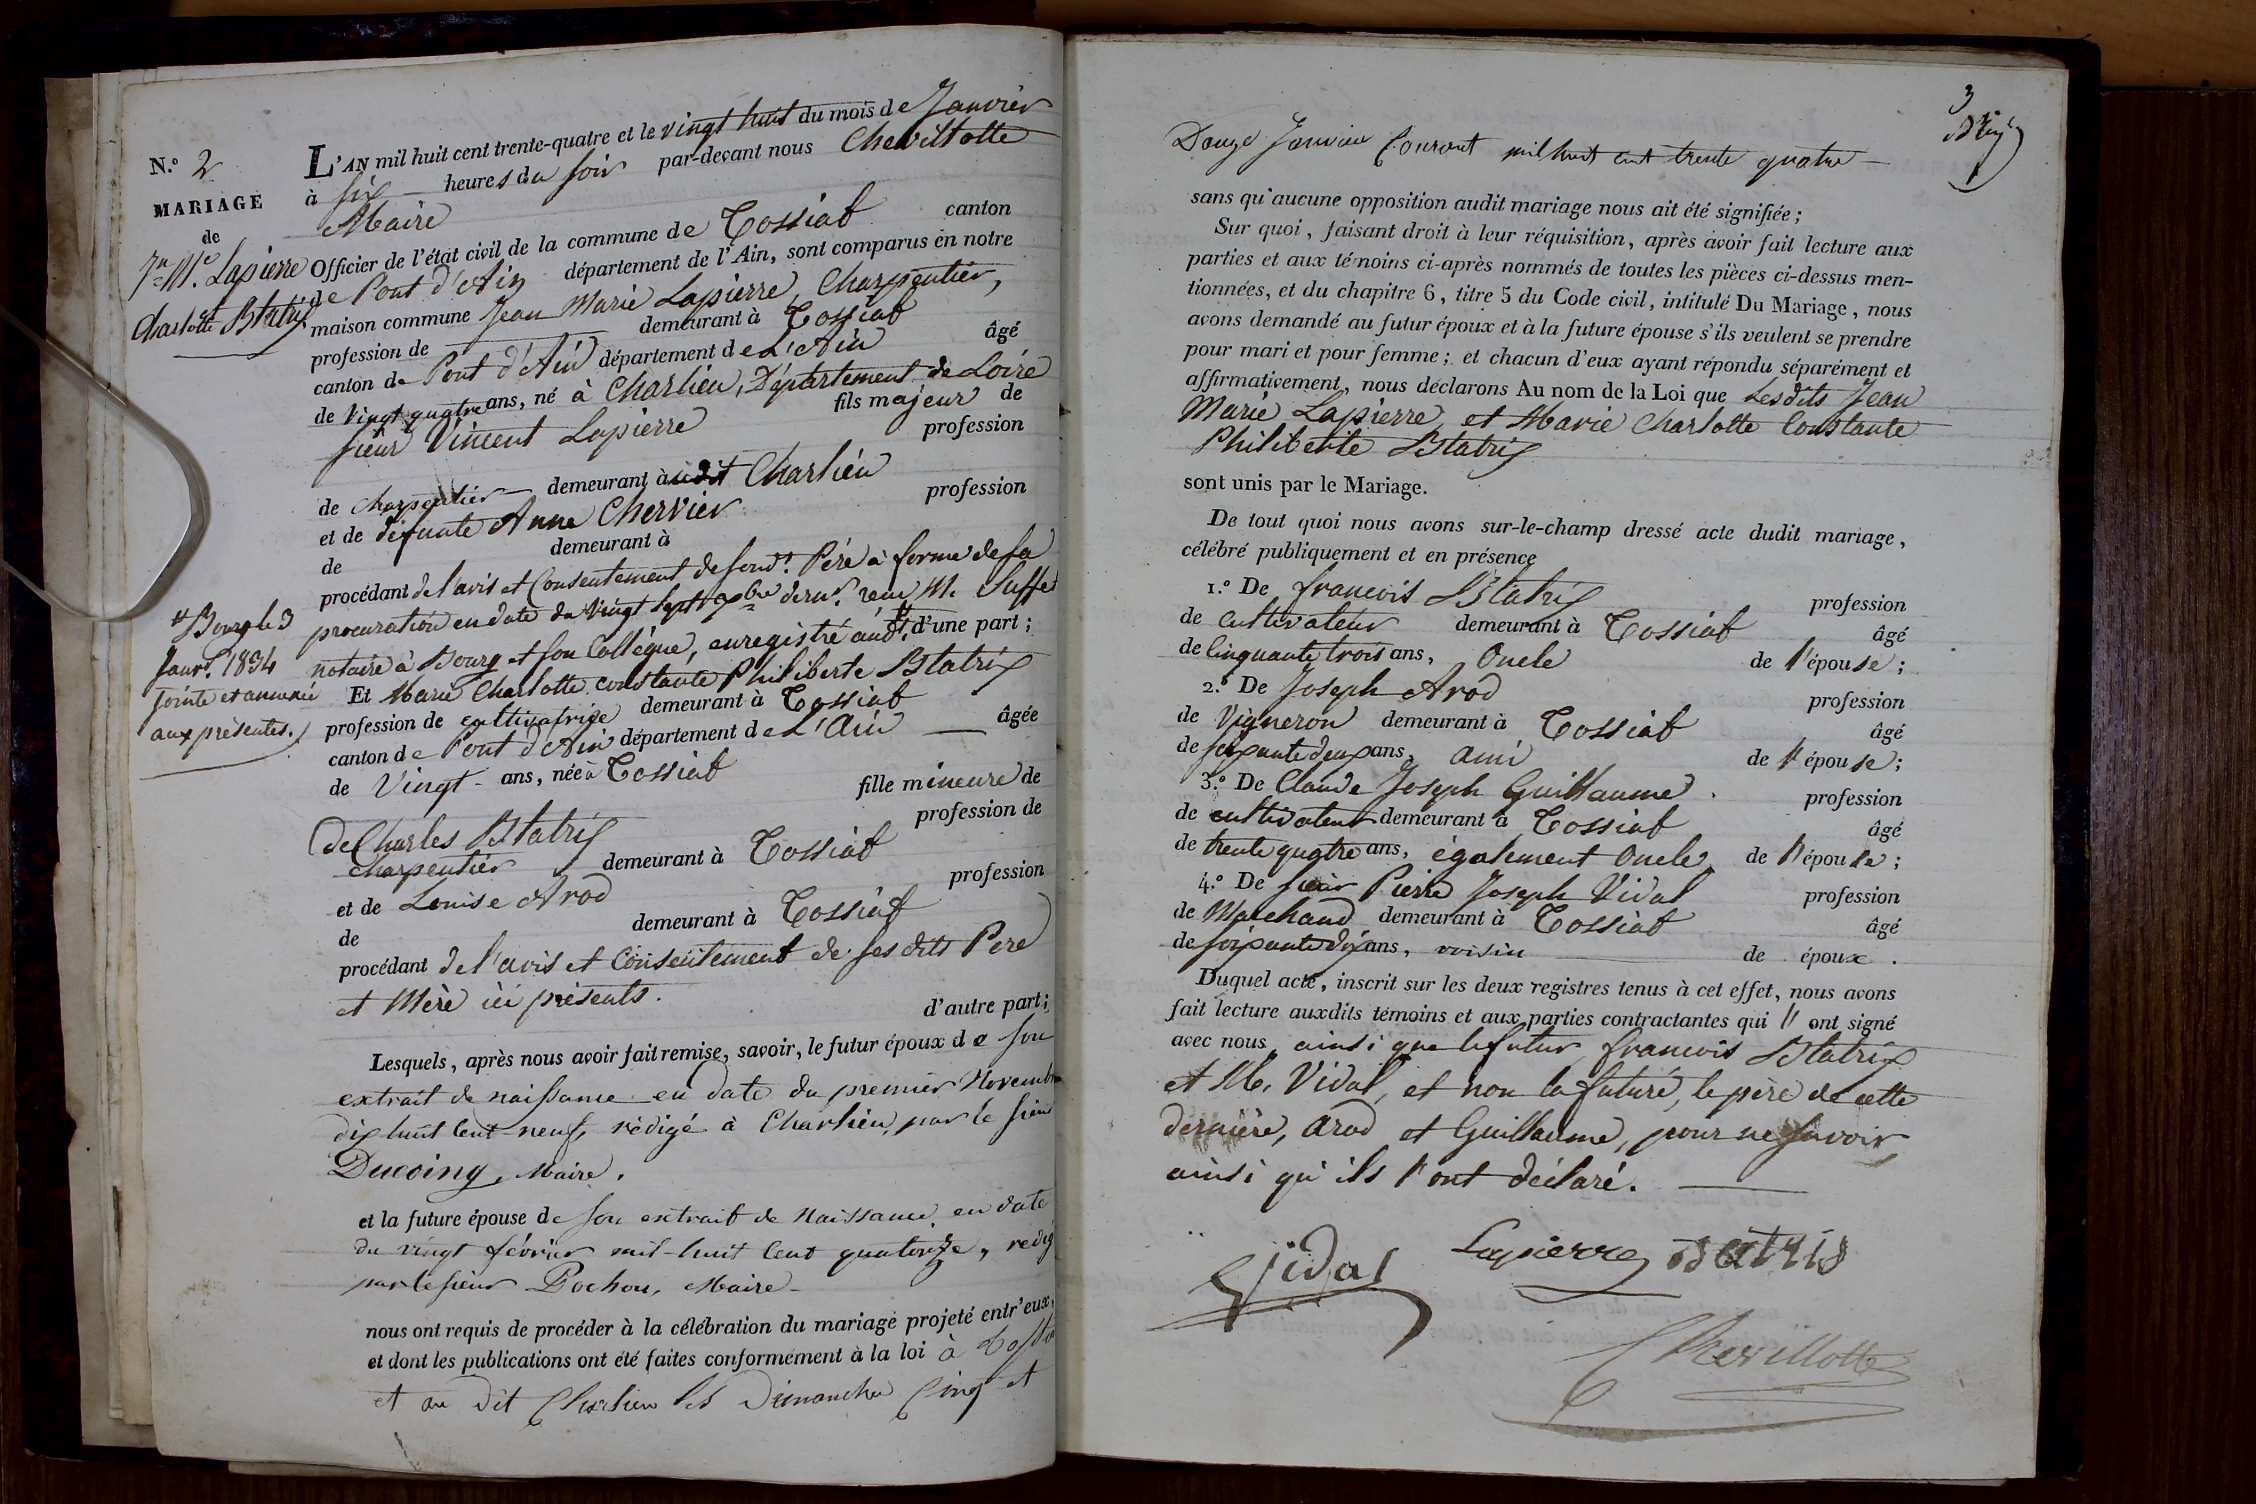 N.o 2
MARIAGE
de
Jn Me Lapierre
Charlotte Blatrix
L'AN mil huit cent trente-quatre et le vingt huit du mois de Janvier
à six heures du soir par-devant nous Chevillotte
Maire
Officier de l'état civil de la commune de Tossiat canton
de Pont d'Ain département de l'Ain, sont comparus en notre
maison commune Jean Marie Lapierre, Charpentier,
profession de demeurant à Tossiat
canton de Pont d'Ain département de L'Ain âgé
de Vingt quatre ans, né à Charlieu, Département de Loire
fils majeur de
sieur Vincent Lapierre profession
de charpentier demeurant à udit Charlieu
et de défunte Anne Chervier profession
de demeurant à
procédant de l'avis et Consentement de sondt. Père à forme de sa
procuration en date du Vingt Sept xbre dernr. reçu M.
notaire à Bourg et son Collègue, enregistré audt. # d'une part ;
# Bourg le 3
Janvr. 1834
Jointe et annexée
aux présentes.
Et Marie Charlotte constante Philiberte Blatrix
profession de cultivatrice demeurant à Tossiat
canton de Pont d'Ain département de L'Ain âgée
de Vingt ans, née à Tossiat
fille mineure de
de Charles Blatrix profession de
charpentier demeurant à Tossiat
et de Louise Arod profession
de demeurant à Tossiat
procédant de l'avis et Consentement de ses dits Pere
et Mère ici présents.
d'autre part ;
Lesquels, après nous avoir fait remise, savoir, le futur époux de son
extrait de naissance en date du premier Novembre
dix huit Cent neuf, rédigé à Charlieu, par le sieur
Ducoing, Maire.
et la future épouse de son extrait de Naissance en date
du vingt février mil-huit Cent quatorze, redigé
par le sieur Pochon, Maire
nous ont requis de procéder à la célébration du mariage projeté entr'eux,
et dont les publications ont été faites conformément à la loi à Tossiat
et au dit Charlieu les Dimanches Cinq et
3
Douze Janvier Courant mil huit cent trente quatre
sans qu'aucune opposition audit mariage nous ait été signifiée ;
Sur quoi, faisant droit à leur réquisition, après avoir fait lecture aux
parties et aux témoins ci-après nommés de toutes les pièces ci-dessus men-
tionnées, et du chapitre 6, titre 5 du Code civil, intitulé Du Mariage, nous
avons demandé au futur époux et à la future épouse s'ils veulent se prendre
pour mari et pour femme ; et chacun d'eux ayant répondu séparément et
affirmativement, nous déclarons Au nom de la Loi que Lesdits Jean
Marie Lapierre, et Marie Charlotte Constante
Philiberte Blatrix
sont unis par le Mariage.
De tout quoi nous avons sur-le-champ dressé acte dudit mariage,
célébré publiquement et en présence
1.o De francois Blatrix profession
de cultivateur demeurant à Tossiat âgé
de Cinquante trois ans, Oncle de l'épouse ;
2.o De Joseph Arod profession
de Vigneron demeurant à Tossiat âgé
de soixante deux ans, ami de l'épouse ;
3.o De Claude Joseph Guillaume profession
de cultivateur demeurant à Tossiat âgé
de trente quatre ans, également Oncle de l'épouse ;
4.o De sieur Pierre Joseph Vidal profession
de Marchand demeurant à Tossiat âgé
de soixante dix ans, voisin de époux.
Duquel acte, inscrit sur les deux registres tenus à cet effet, nous avons
fait lecture auxdits témoins et aux parties contractantes qui // ont signé
avec nous ainsi que le futur francois Blatrix
et M. Vidal, et non la future, le père de cette
dernière, Arod et Guillaume, pour ne savoir
ainsi qu'ils l'ont déclaré.
Vidal Lapierre Blatrix
Chevillotte